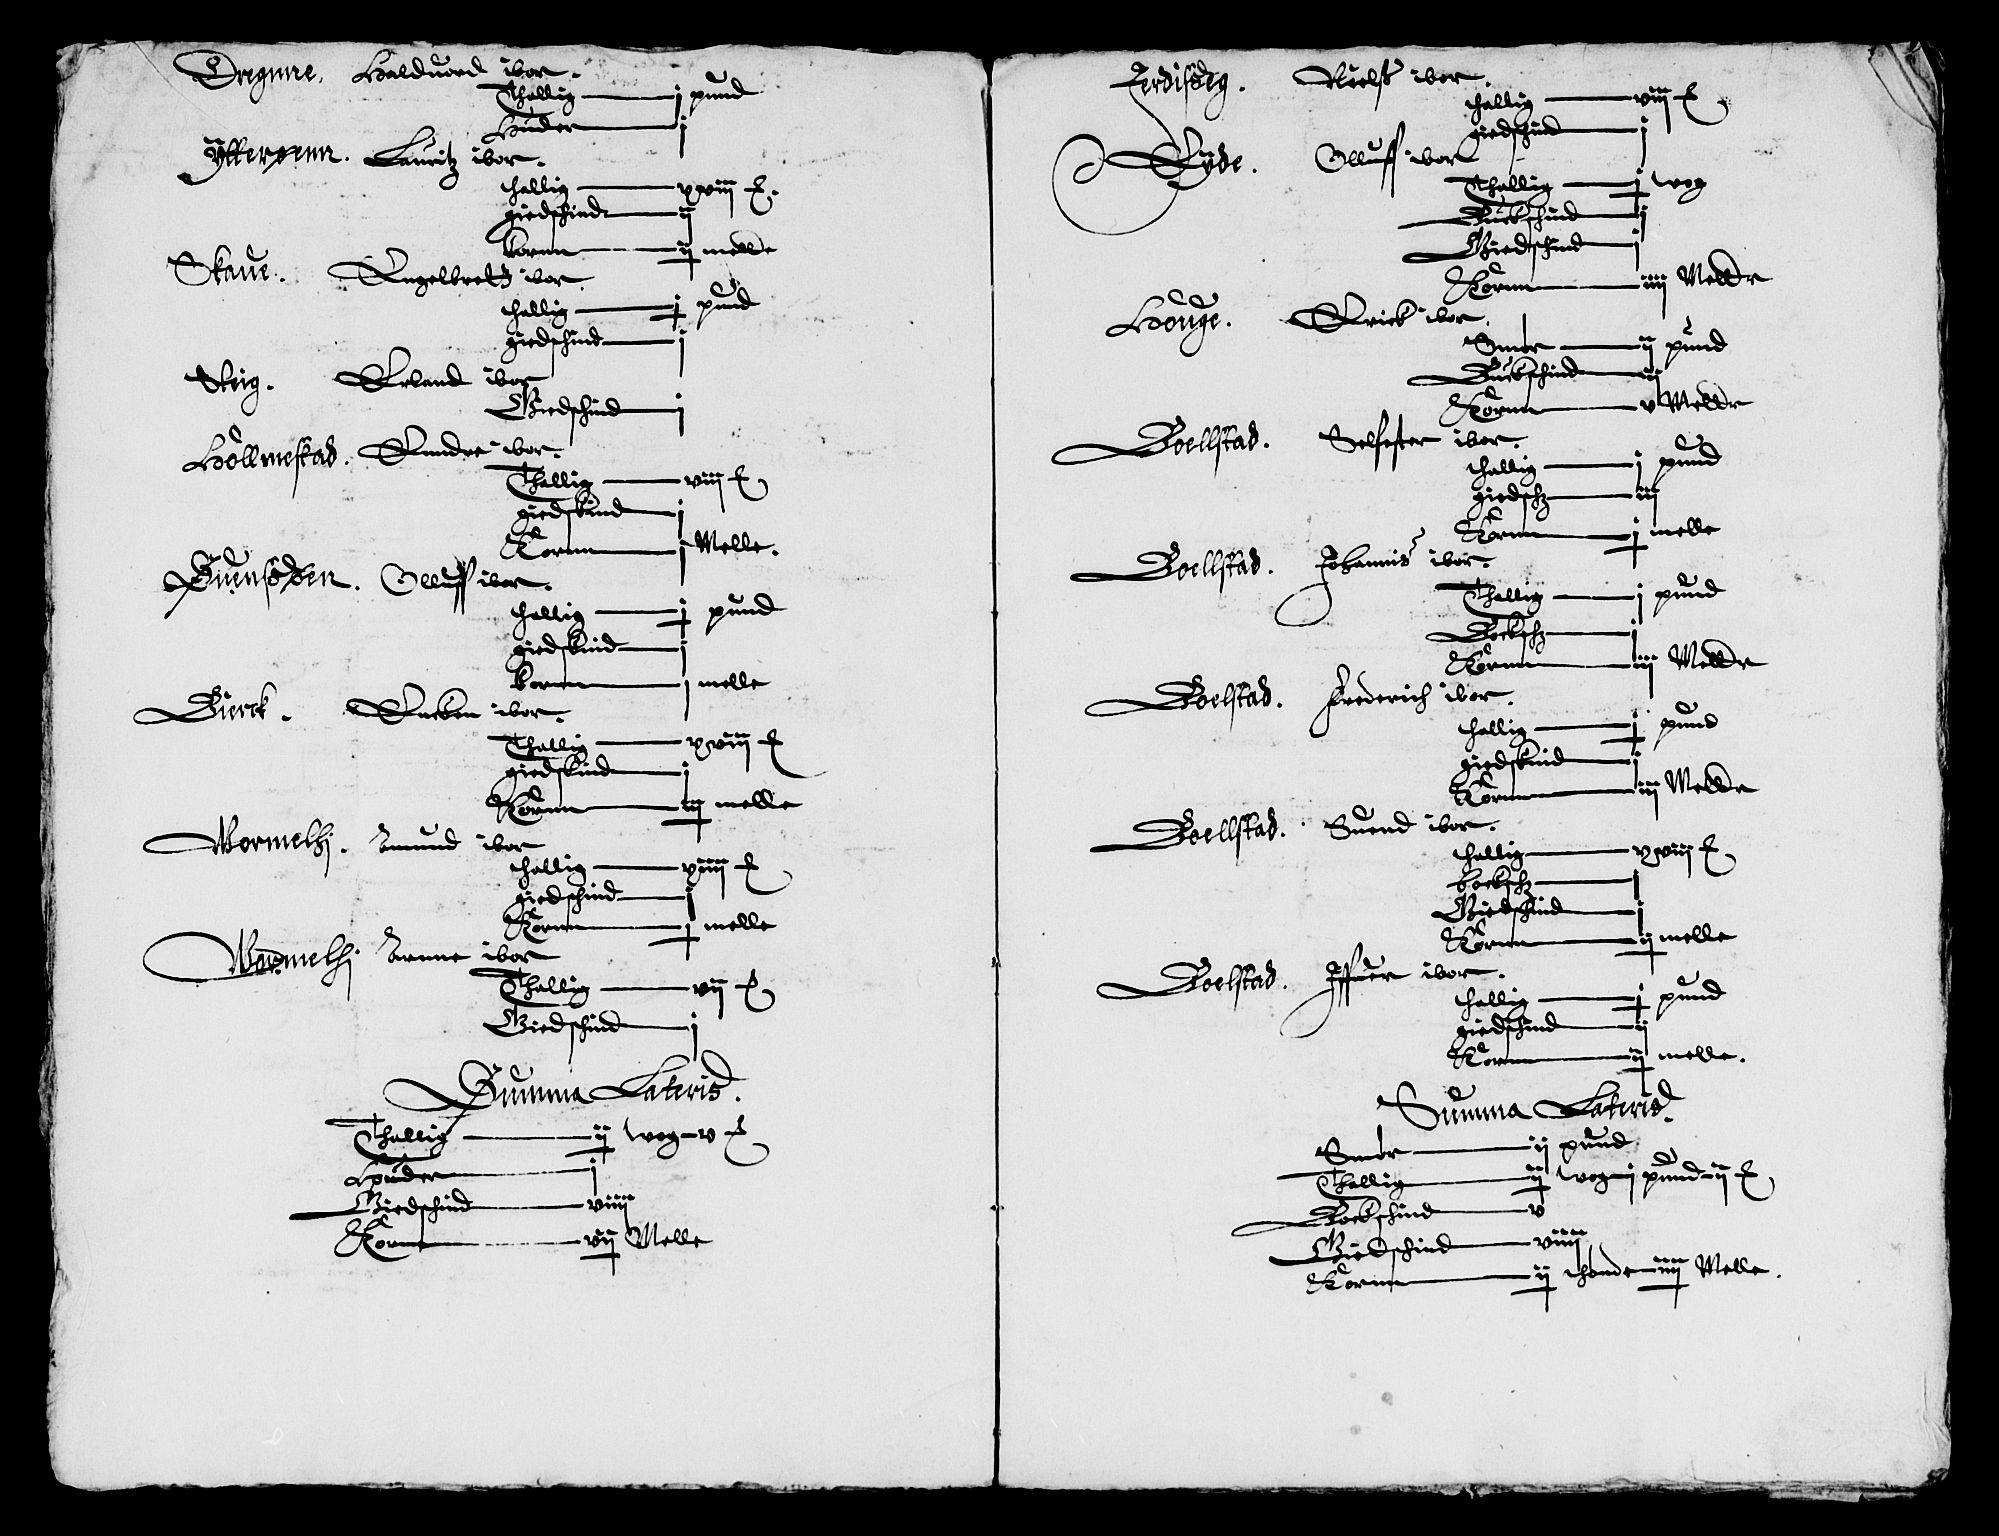 Oregnne. Halduord ibor.
Thallig j pund
Huder j
Ytterøenn. Lauritz ibor.
thallig xviij £.
giedschind ij
kornn ij melle
Skaue. Engelbrett ibor
thallig j pund
giedschind j
Steig. Erland ibor
Giedschind j
Hollmestad. Endre ibor.
Thallig viij £
giedskind j
Kornn j Melle.
Suensøøen. Olluff ibor.
thallig j pund
giedskind j
kornn j melle
Bierck. Encken ibor.
Thallig xviij £
giedskind j
Kornn iij melle
Wormelhj. Amund ibor
thallig xviiij £
giedschind j
Kornn j melle
Wormelhj Arnne ibor
Thallig vij £
Giedschind j
Summa Lateris.
Thallig ij wog v £
Houder j
Giedschind viiij
Kornn vij Melle
Jerdisdeg. Nielss ibor.
thallig viij £
giedschind j
Eyde. Olluff ibor
Thallig j wog
Buckschind j
Giedschind j
Kornn iiij Melldr
Houge. Erick ibor.
Smør ij pund
Buckschind iij
Kornn v Melldr
Boellstad. Selfester ibor.
thallig j pund
giedschz iij
Kornn j melle
Boellstad. Johannis ibor.
Thallig j pund
Bockschz j
Kornn iij Melldr
Boelstad. Frederich ibor.
thallig j pund
giedskind j
Kornn iij Melldr
Boellstad. Suend ibor.
thallig xviij £
bockschz j
Giedschind j
Kornn ij melle
Boelstad. Iffuer ibor.
thallig j pund
giedschind ij
Kornn ij melle.
Summa Lateris.
Smør ij pund
Thallig ij wog j pund ij £
Bockschind v
Giedschind viiij
Kornn ij thönde iiij Melle.